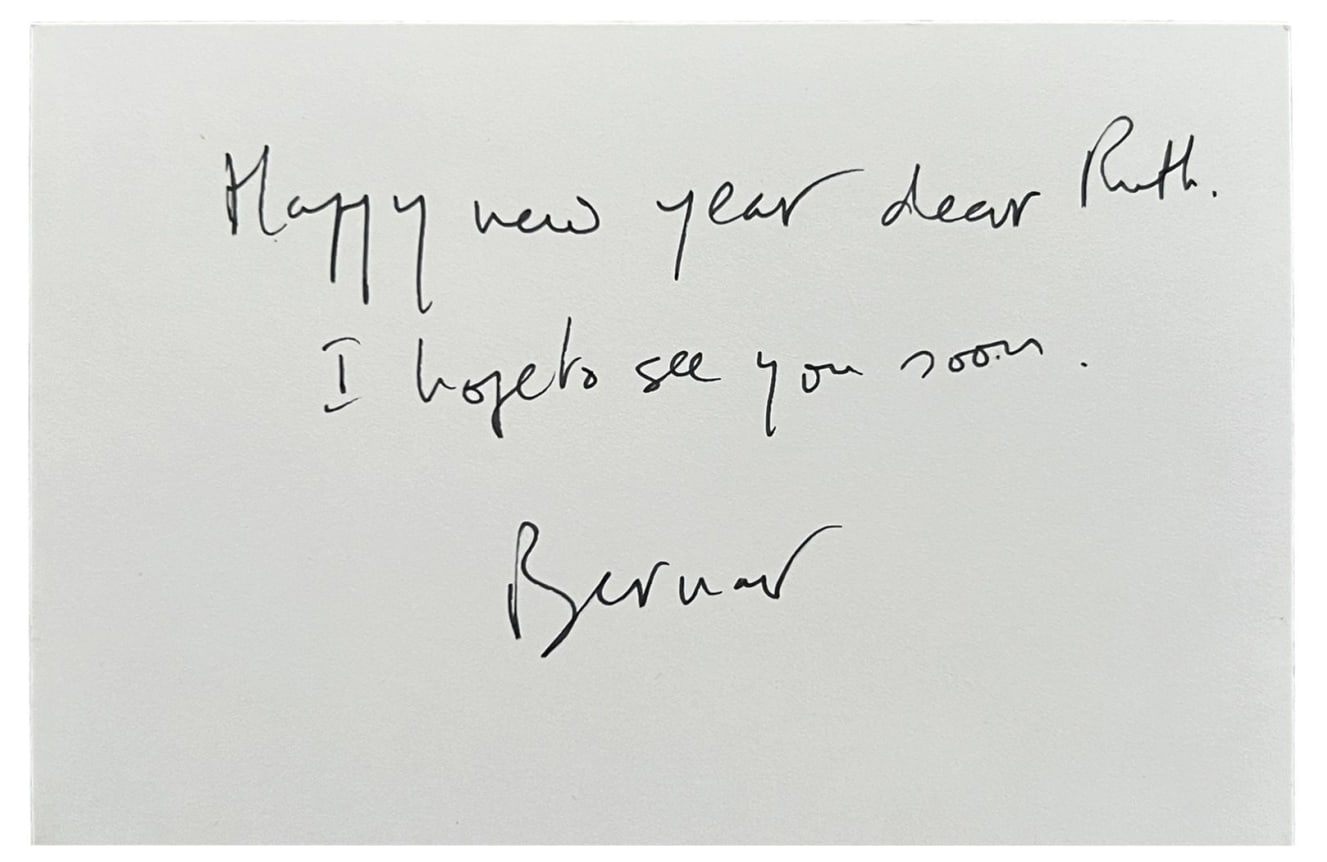 Happy new year dear Ruth.
I hope to see you soon.
Bernar